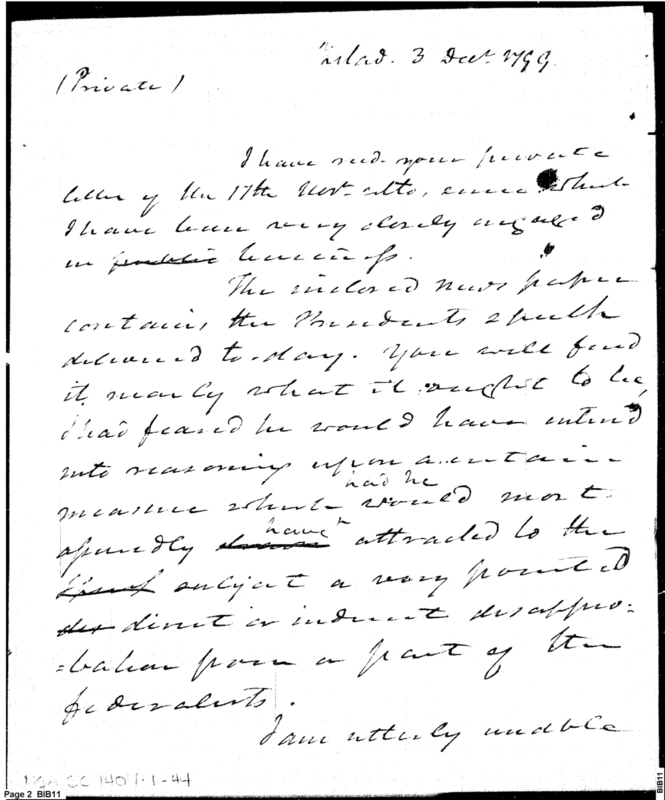 Philad. 3 Decr. 1799.
(Private)
I have recd. your private
letter of the 17th Novr. ulto, since which
I have been very closely engaged
in public business.
The inclosed news paper
contains the Presidents speech
delivered to-day. You will find
it nearly what it ought to be,
I had feared he would have enterd
into reasoning upon a certain
measure which had he would most
assuredly have attracted to the
subject a very pointed
direct or indirect disappro-
-bation from a part of the
federalists.
I am utterly unable
Page 2 BIB11
BIB11